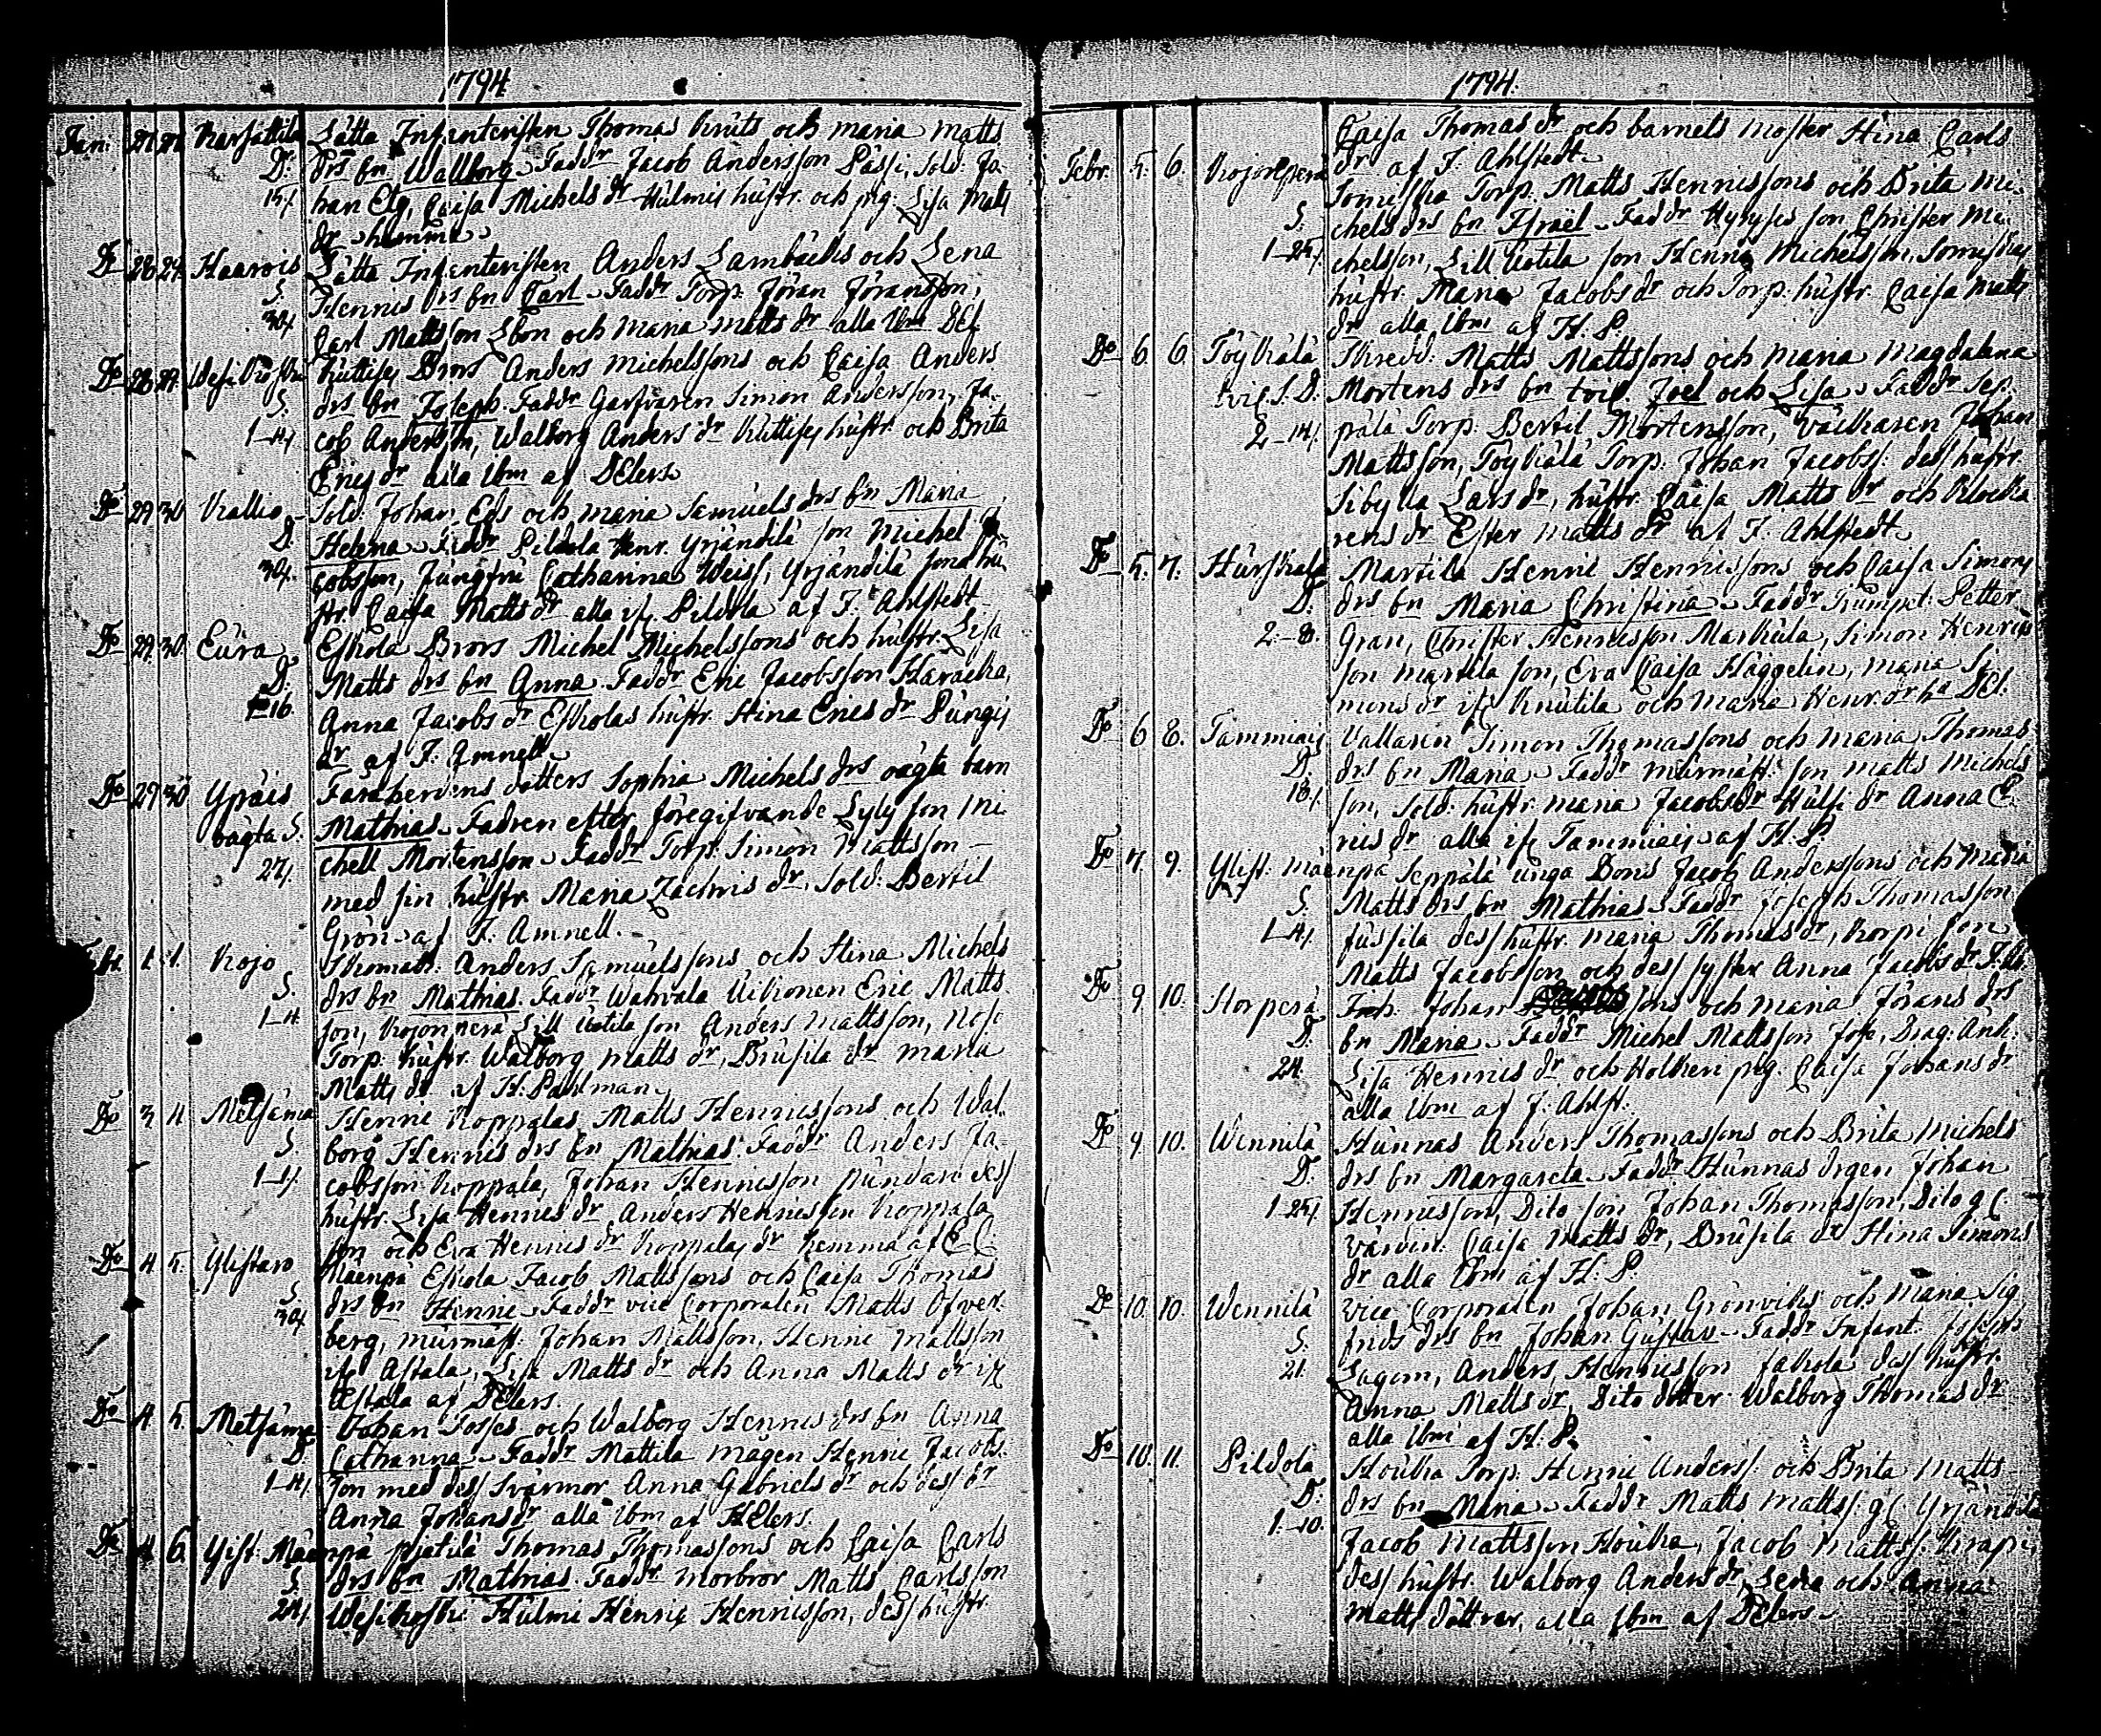 1794
Jan: 27 28 Karsattila Lätta Infanteristen Thomas Knuts och Maria Matts
D. drs bn Wallborg. Faddr Jacob Andersson Passi, Sold. Jo
15/. han Elg, Caisa Michels dr Hulmis hustr. och pig. Lisa Matts
dr hemma
Do 28 29 Haarois Lätta Infanteristen Anders Lambackis och Lena
S. Henrics drs bn Carl. Faddr Torp. Jöran Jöransson,
30/. Carl Mattsson och Maria Matts dr alla Ibm
Do 28 29. Anders Michelssons och Caisa Anders
S. drs bn Joseph. Faddr Simon Andersson, Ja-
1-4/. cob Andersson, Walborg Anders dr hustr. och Brita
Erics dr alla Ibm af
Do 29 30 Kallio Sold. Johan Eds och Maria Samuels drs bn Maria
D. Helena. Faddr Pildola Henr. Yrjändilä son Michel Ja-
30/. cobsson, Jungfru Catharina Weiss, Yrjändilä sona hu-
str. Caisa Matts dr alla ifr. Pildola af J. Ahlstedt
Do 29. 30. Eura Eskola Brors Michel Michelssons och hustr. Lisa
D. Matts drs bn Anna. Faddr Eric Jacobsson
1-16. Anna Jacobs dr Eskolas hustr. Stina Erics dr
dr af J. Amnell.
Do 29 30 Ypäis dotters Sophia Michels drs oägta barn
oägta S. Mathias. Fadren efter föregifvande Lyly son Mi-
27/. chell Mortensson. Faddr Torp. Simon Mattsson
med sin hustr. Maria Zachris dr, Sold. Bertil
Grön. af J. Amnell.
Febr. 1. 1. Kojo Anders Samuelssons och Stina Michels
S. drs bn Mathias. Faddr Eric Matts
1-4. son, Lill Uotila son Anders Mattsson, Kojo
Torp. hustr. Walborg Matts dr, dr Maria
Matts dr af H. Pahlman
Do 3 4 Metsämaa Henric Koppalas Matts Henricssons och Wal
S. borg Henrics drs bn Mathias. Faddr Anders Ja-
1-4/. cobsson Koppala, Johan Henricsson dess
hustr. Lisa Henrics dr Anders Henricsson Koppala
son och Eva Henrics dr Koppalas dr hemma af E. C.
Do 4. 5. Ylistaro Mäenpä Eskola Jacob Mattssons och Caisa Thomas
S. drs bn Henric. Faddr vice Corporalen Matts Öfver
30/. berg, murmäst. Johan Mattsson, Henric Mattsson
ifr. Astala, Lisa Matts dr och Anna Matts dr ifr
Astala af
Do 4 5. Metsämaa Johan och Walborg Henrics drs bn Anna
D. Catharina. Faddr Mattila mågen Henric Jacobs
1-4/. son med dess svärmor Anna Gabriels dr och dess dr
Anna Johans dr alla Ibm af
Do 4 6. Ylist. Mäenpä Thomas Thomassons och Caisa Carls
S. drs bn Mathias. Faddr morbror Matts Carlsson
24/. Hulmi Henric Henricsson, dess hustr.
1794.
Caisa Thomas dr och barnets moster Stina Carls
dr af J. Ahlstedt
Febr. 5. 6. Kojonperä Torp. Matts Henricssons och Brita Mi-
S. chels drs bn Israel. Faddr son Christer Mi-
1-25/. chelsson, Lill Uotila son Henric Michelsson,
hustr. Maria Jacobs dr och Torp. hustr. Caisa Matts
dr alla Ibm af H. P.
Do 6. 6. Töykälä Skredd. Matts Mattssons och Maria Magdalena
tvil. S. D. Mortens drs bn tvil. Joel och Lisa. Faddr Sep-
2-14/. pälä Torp. Bertil Mortensson, Johan
Mattsson, Töykälä Torp. Johan Jacobss. dess hustr.
Sibylla Lars dr, hustr. Caisa Matts dr och Klocka
rens dr Ester Matts dr af J. Ahlstedt
Do 5. 7. Martila Henric Henricssons och Caisa Simons
D. drs bn Maria Christina. Faddr Trumpet. Petter
2-8. Gran, Christer Henricsson Markula, Simon Henrics
son Martila son, Eva Caisa Häggelin, Maria Si-
mons dr ifr. Knutila och Maria Henr. dr
Do 6 8. Tammiais Vallaren Simon Thomassons och Maria Thomas
D. drs bn Maria. Faddr murmäst. son Matts Michels
18/. son, Sold. hustr. Maria Jacobs dr Hulsi dr Anna E-
rics dr alla ifr. Tammiais af H. P.
Do 7. 9. Ylist. Mäenpä Seppälä unga Bons Jacob Anderssons och Maria
S. Matts drs bn Mathias. Faddr Joseph Thomasson
1-4/. Jussila dess hustr. Maria Thomas dr, Korpi son
Matts Jacobsson och dess syster Anna Jacobs dr
Do 9 10. Korperä Johan sons och Maria Jörans drs
D. bn Maria. Faddr Michel Mattsson Drag. Änk.
24. Lisa Henrics dr och pig. Caisa Johans dr
alla Ibm af J. Ahlst.
Do 9. 10. Wennilä Hunnas Anders Thomassons och Brita Michels
D. drs bn Margareta. Faddr Hunnas drgen Johan
1-25/. Henricsson, Dito son Johan Thomasson, Dito g.
Caisa Matts dr, dr Stina Simons
dr alla Ibm af H. P.
Do 10. 10. Wennilä vice Corporalen Johan Grönviks och Maria Sig
S. frids drs bn Johan Gustav. Faddr Infant. Joseph
21. Anders Henricsson Jakola dess hustr.
Anna Matts dr, Dito dotter Walborg Thomas dr
alla Ibm af H. P.
Do 10. 11. Pildola Houka Torp. Henric Anderss. och Brita Matts
D. drs bn Maria. Faddr Matts Mattss. g. Yrjändilä
1-10. Jacob Mattsson Houka, Jacob Mattss. Krapi
dess hustr. Walborg Anders dr, Lena och Anna
Matts döttrar, alla Ibm af